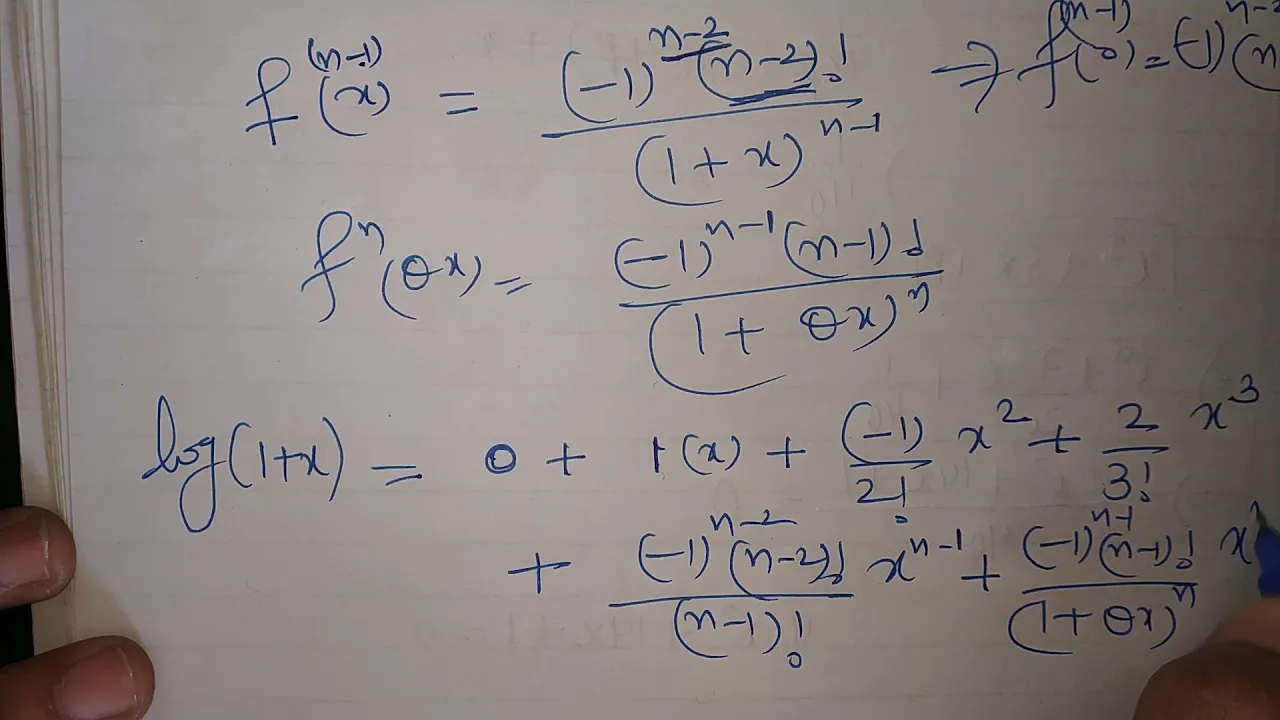 f^(n-1)(x) = (-1)^n-2 (n-2)! / (1+x)^n-1 ⇒ f^(n-1)(0) = (-1)^n-2 (n
f^n(θx) = (-1)^n-1 (n-1)! / (1 + θx)^n
log(1+x) = 0 + 1(x) + (-1)/2! x^2 + 2/3! x^3
+ (-1)^n-2 (n-2)! / (n-1)! x^n-1 + (-1)^n-1 (n-1)! / (1+θx)^n x